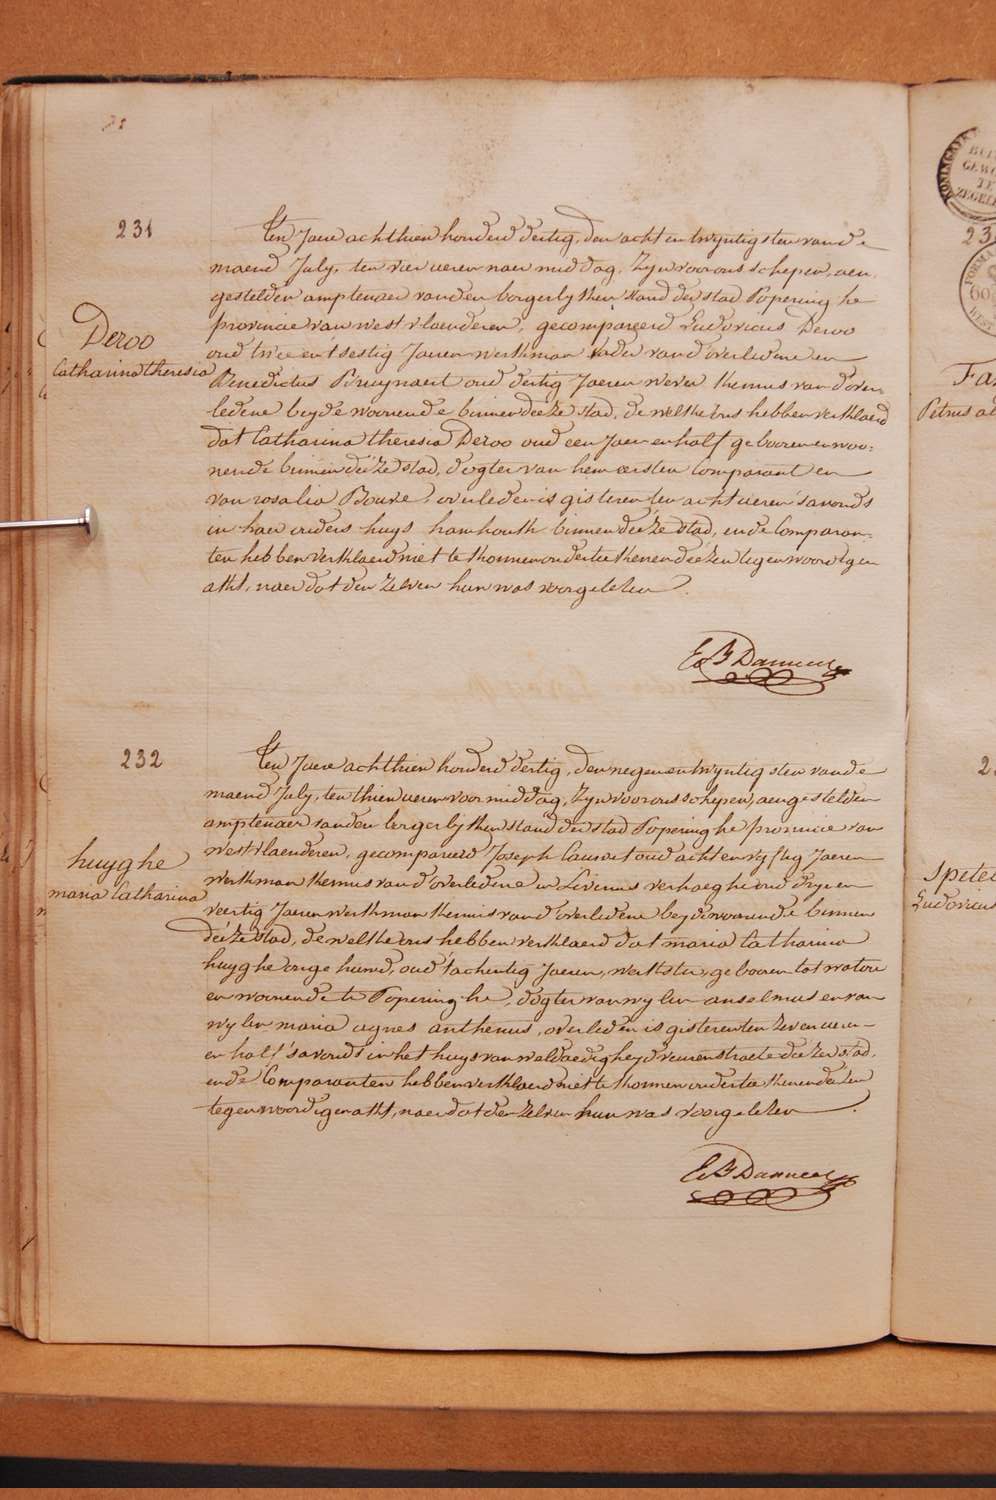 231
Deroo
Catharina theresia
Ten Jaere achthien honderd dertig, den acht en twyntigsten van de
maend July, ten vier ueren naer middag, Zyn voor ons schepen, aen-
gestelden amptenaer van den borgerlyken stand der stad Poperinghe
provincie van westvlaenderen, gecompareerd Ludovicus Deroo
oud twee en tsestig Jaeren werkman vader van d'overledene en
Benedictus Pruynaert oud dertig Jaeren wever kennis van d'over-
ledene beyde woonende binnen deeze stad, de welke ons hebben verklaerd
dat Catharina theresia Deroo oud een Jaer en half gebooren en woo-
nende binnen deeze stad, dogter van hem eersten Comparant en
van rosalia Bouve, overleden is gisteren ten acht ueren s'avonds
in haer ouders huys binnen deeze stad, ende Comparan-
ten hebben verklaerd niet te konnen onderteekenen deezen tegenwoordigen
akt, naer dat den zelven hun was voorgelezen.
232
huyghe
maria Catharina
Ten Jaere achthien honderd dertig, den negen en twyntigsten van de
maend July, ten thien ueren voormiddag, Zyn voor ons schepen, aengestelden
amptenaer van den borgerlyken stand der stad Poperinghe provincie van
westvlaenderen, gecompareerd Joseph Cauwet oud acht en vyftig Jaeren
werkman kennis van d'overledene en Livinus verhaeghe oud drye en
veertig Jaeren werkman kennis van d'overledene beyde woonende binnen
deeze stad, de welke ons hebben verklaerd dat maria Catharina
huyghe oud tachentig Jaeren, werkster, gebooren tot watou
en woonende te Poperinghe, dogter van wylen anselmus en van
wylen maria agnes anthenus, overleden is gisteren ten zeven ueren
en half s'avonds in het huys van weldaedigheyd veurenstraete deezer stad,
ende Comparanten hebben verklaerd niet te konnen onderteekenen deezen
tegenwoordigen akt, naer dat den zelven hun was voorgelezen.
Petrus
Ludovicus